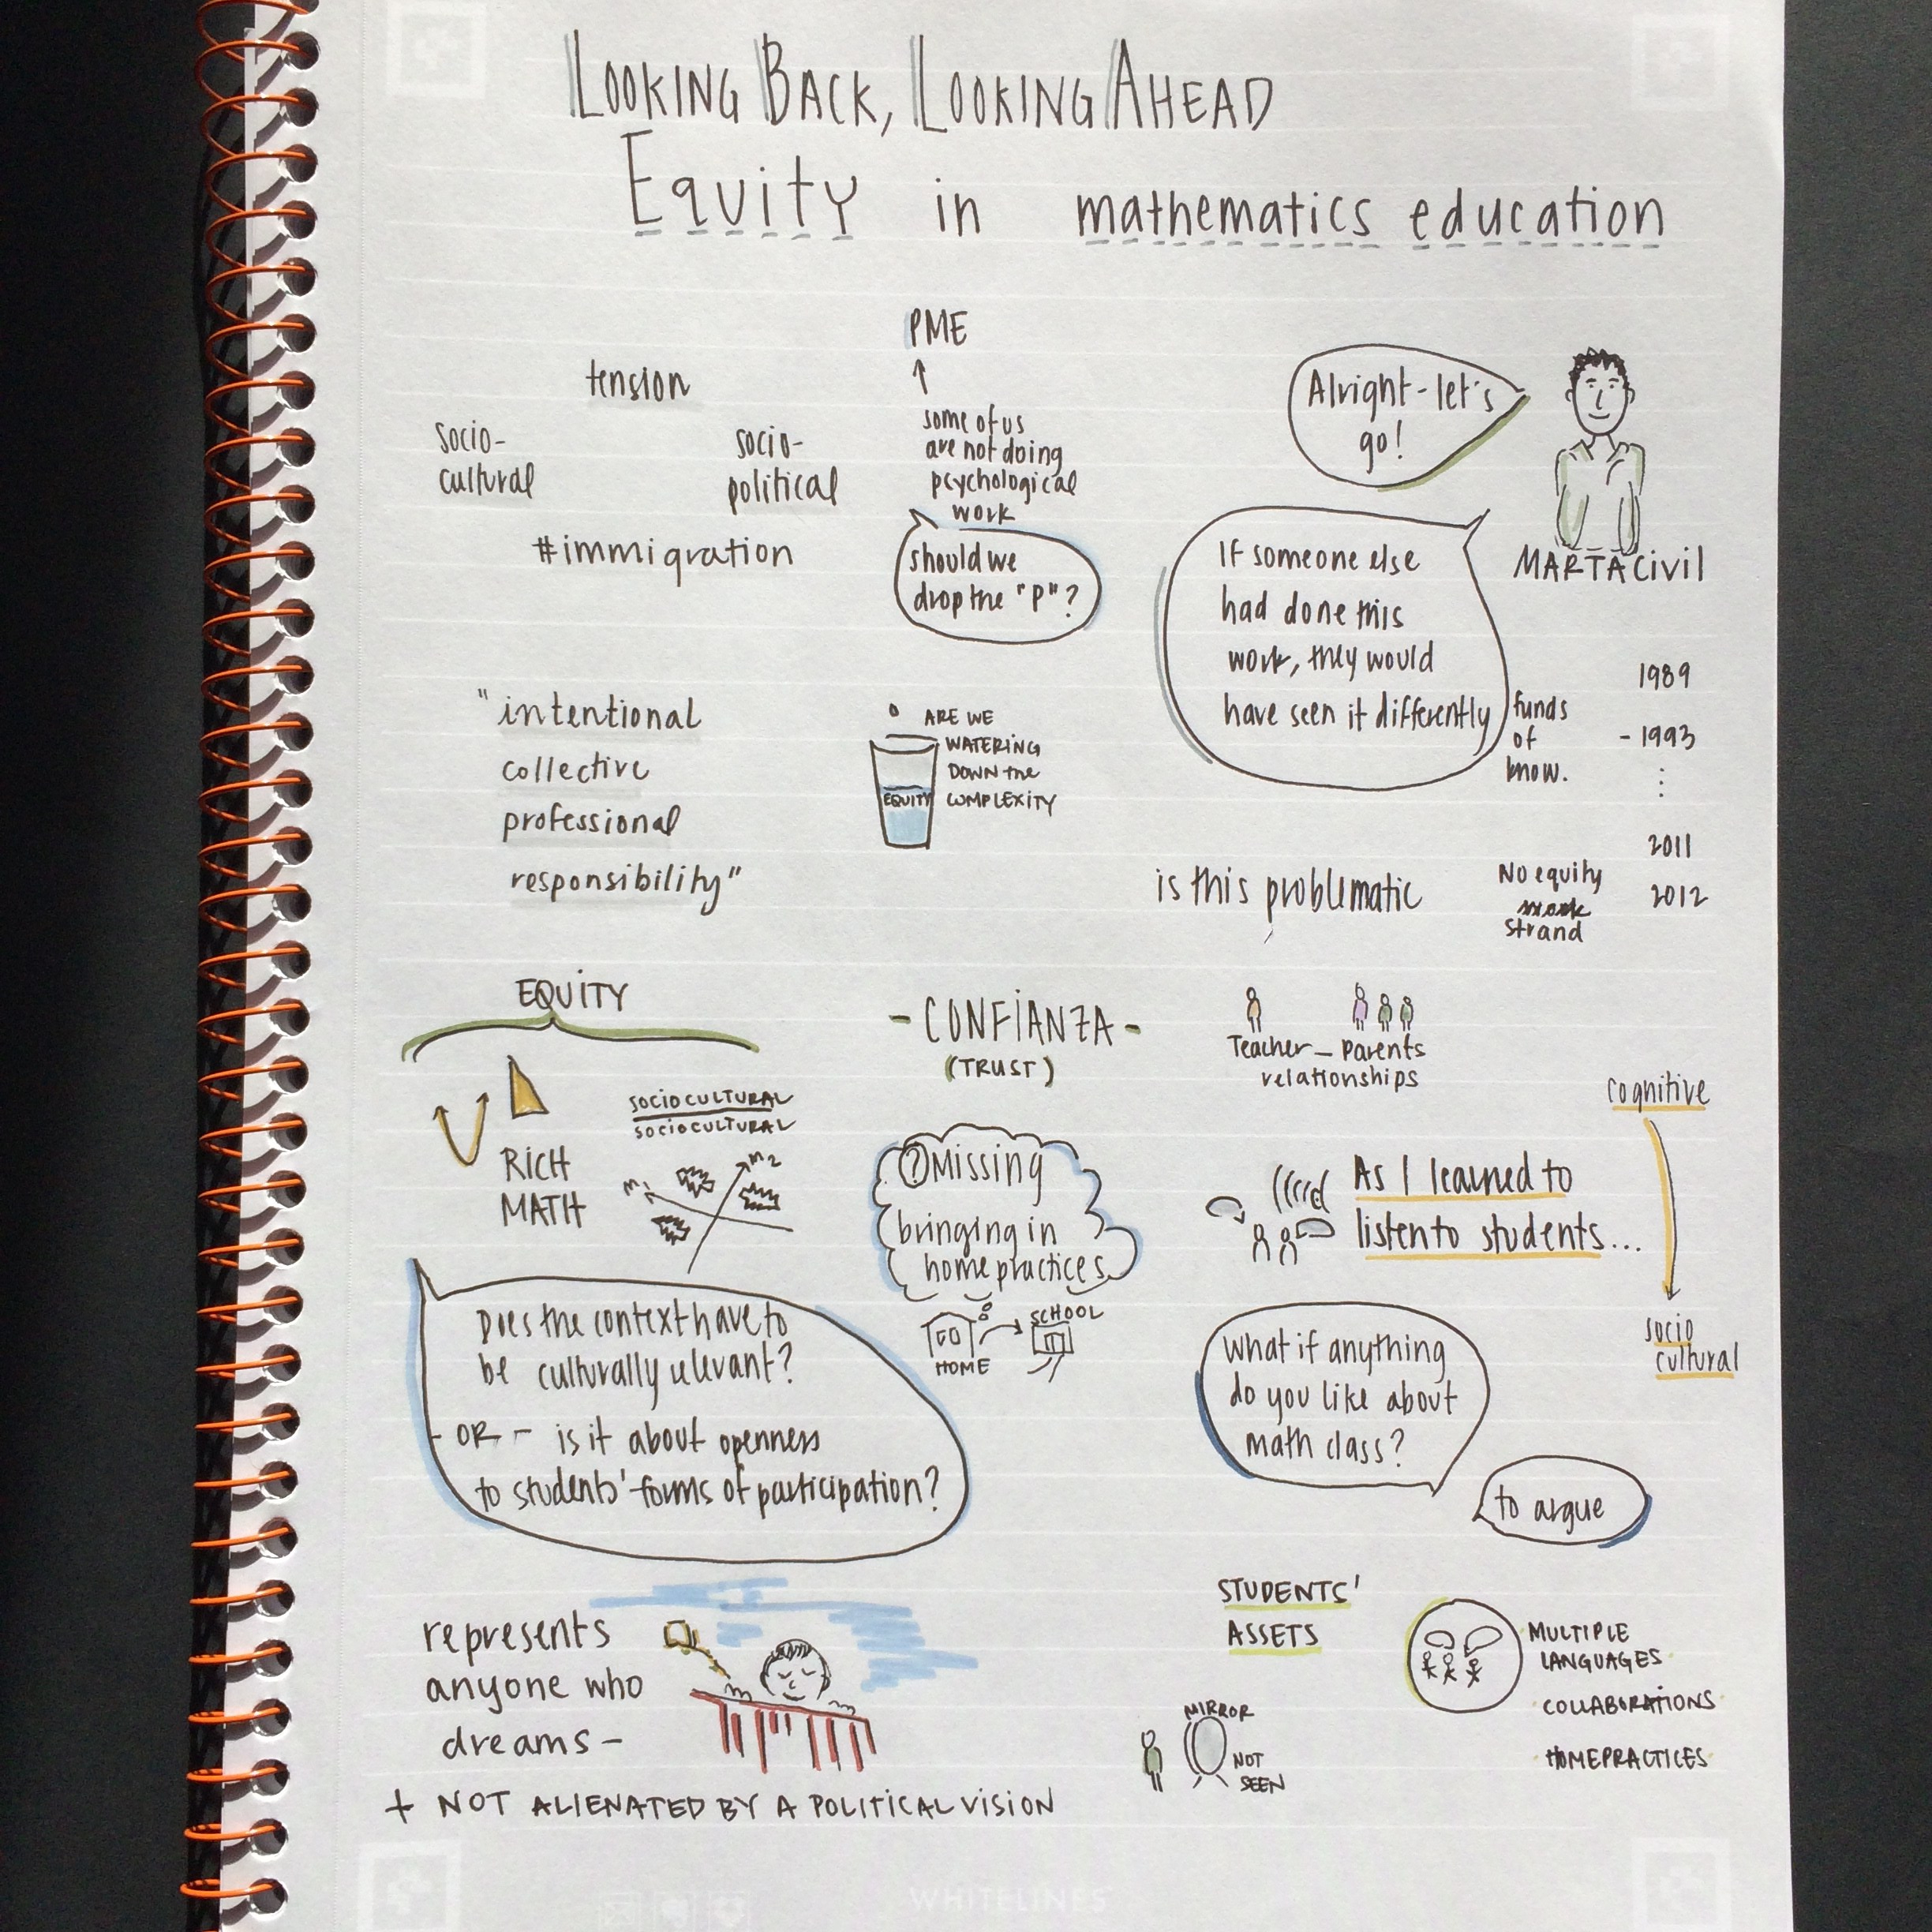 LOOKING BACK, LOOKING AHEAD
Equity in mathematics education
PME
tension
some of us
are not doing
psychological
work
socio-
cultural
socio-
political
#immigration
should we
drop the "P"?
Alright-let's
go!
MARTA CIVIL
If someone else
had done this
work, they would
have seen it differently
1989
funds
of
know.
- 1993
2011
2012
No equity
strand
is this problematic
"intentional
collective
professional
responsibility"
ARE WE
WATERING
DOWN the
COMPLEXITY
EQUITY
EQUITY
RICH
MATH
SOCIOCULTURAL
SOCIOCULTURAL
m1
m2
- CONFIANZA -
(TRUST)
Teacher - Parents
relationships
cognitive
socio
cultural
? Missing
bringing in
home practices
HOME
SCHOOL
As I learned to
listen to students...
Does the context have to
be culturally relevant?
- OR - is it about openness
to students' forms of participation?
What if anything
do you like about
math class?
to argue
represents
anyone who
dreams -
+ NOT ALIENATED BY A POLITICAL VISION
STUDENTS'
ASSETS
MULTIPLE
LANGUAGES
COLLABORATIONS
HOMEPRACTICES
MIRROR
NOT
SEEN
WHITELINES